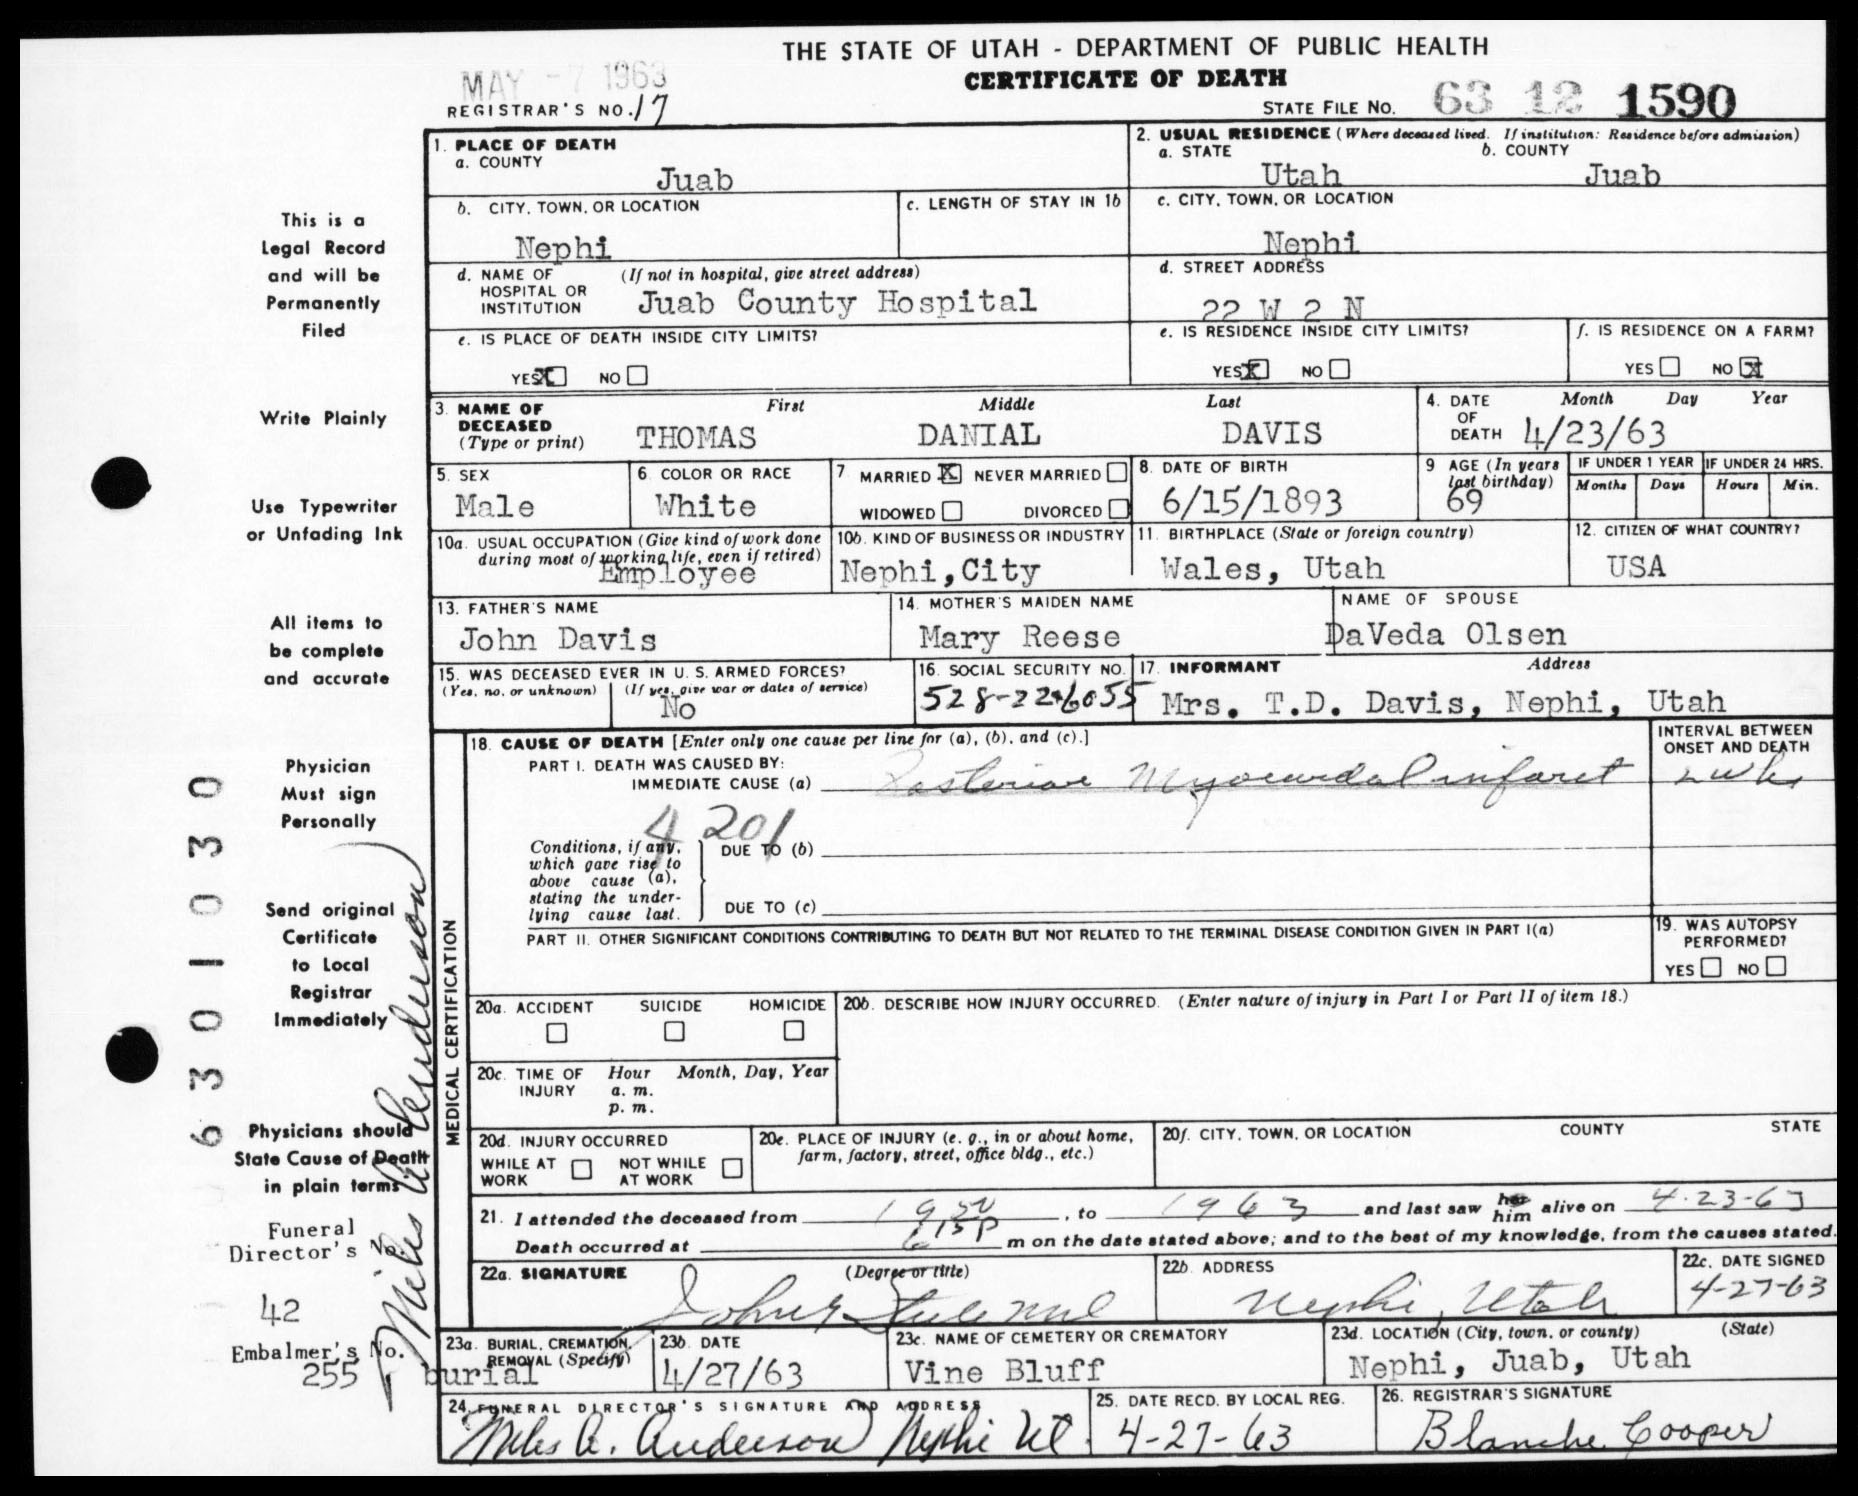 THE STATE OF UTAH - DEPARTMENT OF PUBLIC HEALTH
MAY - 7 1963
CERTIFICATE OF DEATH
REGISTRAR'S NO. 17
STATE FILE No. 63 12 1590
1. PLACE OF DEATH
a. COUNTY
Juab
2. USUAL RESIDENCE (Where deceased lived. If institution: Residence before admission)
a. STATE b. COUNTY
Utah Juab
b. CITY, TOWN, OR LOCATION
Nephi
c. LENGTH OF STAY IN 1b
c. CITY, TOWN, OR LOCATION
Nephi
d. NAME OF (If not in hospital, give street address)
HOSPITAL OR
INSTITUTION Juab County Hospital
d. STREET ADDRESS
22 W 2 N
e. IS PLACE OF DEATH INSIDE CITY LIMITS?
YES X NO
e. IS RESIDENCE INSIDE CITY LIMITS?
YES X NO
f. IS RESIDENCE ON A FARM?
YES NO X
3. NAME OF First Middle Last
DECEASED
(Type or print) THOMAS DANIAL DAVIS
4. DATE Month Day Year
OF
DEATH 4/23/63
5. SEX
Male
6. COLOR OR RACE
White
7. MARRIED X NEVER MARRIED
WIDOWED DIVORCED
8. DATE OF BIRTH
6/15/1893
9 AGE (In years
last birthday)
69
IF UNDER 1 YEAR
Months Days
IF UNDER 24 HRS.
Hours Min.
10a. USUAL OCCUPATION (Give kind of work done
during most of working life, even if retired)
Employee
10b. KIND OF BUSINESS OR INDUSTRY
Nephi, City
11. BIRTHPLACE (State or foreign country)
Wales, Utah
12. CITIZEN OF WHAT COUNTRY?
USA
13. FATHER'S NAME
John Davis
14. MOTHER'S MAIDEN NAME
Mary Reese
NAME OF SPOUSE
DaVeda Olsen
15. WAS DECEASED EVER IN U. S. ARMED FORCES?
(Yes, no. or unknown) (If yes, give war or dates of service)
No
16. SOCIAL SECURITY NO.
528-22-6055
17. INFORMANT Address
Mrs. T.D. Davis, Nephi, Utah
MEDICAL CERTIFICATION
18. CAUSE OF DEATH [Enter only one cause per line for (a), (b), and (c).]
PART I. DEATH WAS CAUSED BY:
IMMEDIATE CAUSE (a) Posterior Myocardal infarct
INTERVAL BETWEEN
ONSET AND DEATH
2 wks
4201
Conditions, if any,
which gave rise to
above cause (a),
stating the under-
lying cause last.
DUE TO (b)
DUE TO (c)
PART II. OTHER SIGNIFICANT CONDITIONS CONTRIBUTING TO DEATH BUT NOT RELATED TO THE TERMINAL DISEASE CONDITION GIVEN IN PART I(a)
19. WAS AUTOPSY
PERFORMED?
YES NO
20a. ACCIDENT SUICIDE HOMICIDE
20b. DESCRIBE HOW INJURY OCCURRED. (Enter nature of injury in Part I or Part II of item 18.)
20c. TIME OF Hour Month, Day, Year
INJURY a. m.
p. m.
20d. INJURY OCCURRED
WHILE AT NOT WHILE
WORK AT WORK
20e. PLACE OF INJURY (e. g., in or about home,
farm, factory, street, office bldg., etc.)
20f. CITY, TOWN, OR LOCATION COUNTY STATE
21. I attended the deceased from 1950, to 1963 and last saw her him alive on 4-23-63
Death occurred at 615 P m on the date stated above; and to the best of my knowledge, from the causes stated.
22a. SIGNATURE (Degree or title)
22b. ADDRESS
Nephi, Utah
22c. DATE SIGNED
4-27-63
23a. BURIAL, CREMATION,
REMOVAL (Specify)
burial
23b. DATE
4/27/63
23c. NAME OF CEMETERY OR CREMATORY
Vine Bluff
23d. LOCATION (City, town, or county) (State)
Nephi, Juab, Utah
24. FUNERAL DIRECTOR'S SIGNATURE AND ADDRESS
Miles A. Anderson Nephi Ut.
25. DATE RECD. BY LOCAL REG.
4-27-63
26. REGISTRAR'S SIGNATURE
Blanche Cooper
This is a
Legal Record
and will be
Permanently
Filed
Write Plainly
Use Typewriter
or Unfading Ink
All items to
be complete
and accurate
Physician
Must sign
Personally
Send original
Certificate
to Local
Registrar
Immediately
Physicians should
State Cause of Death
in plain terms
Funeral
Director's No.
42
Embalmer's No.
255
6301030
Miles A. Anderson